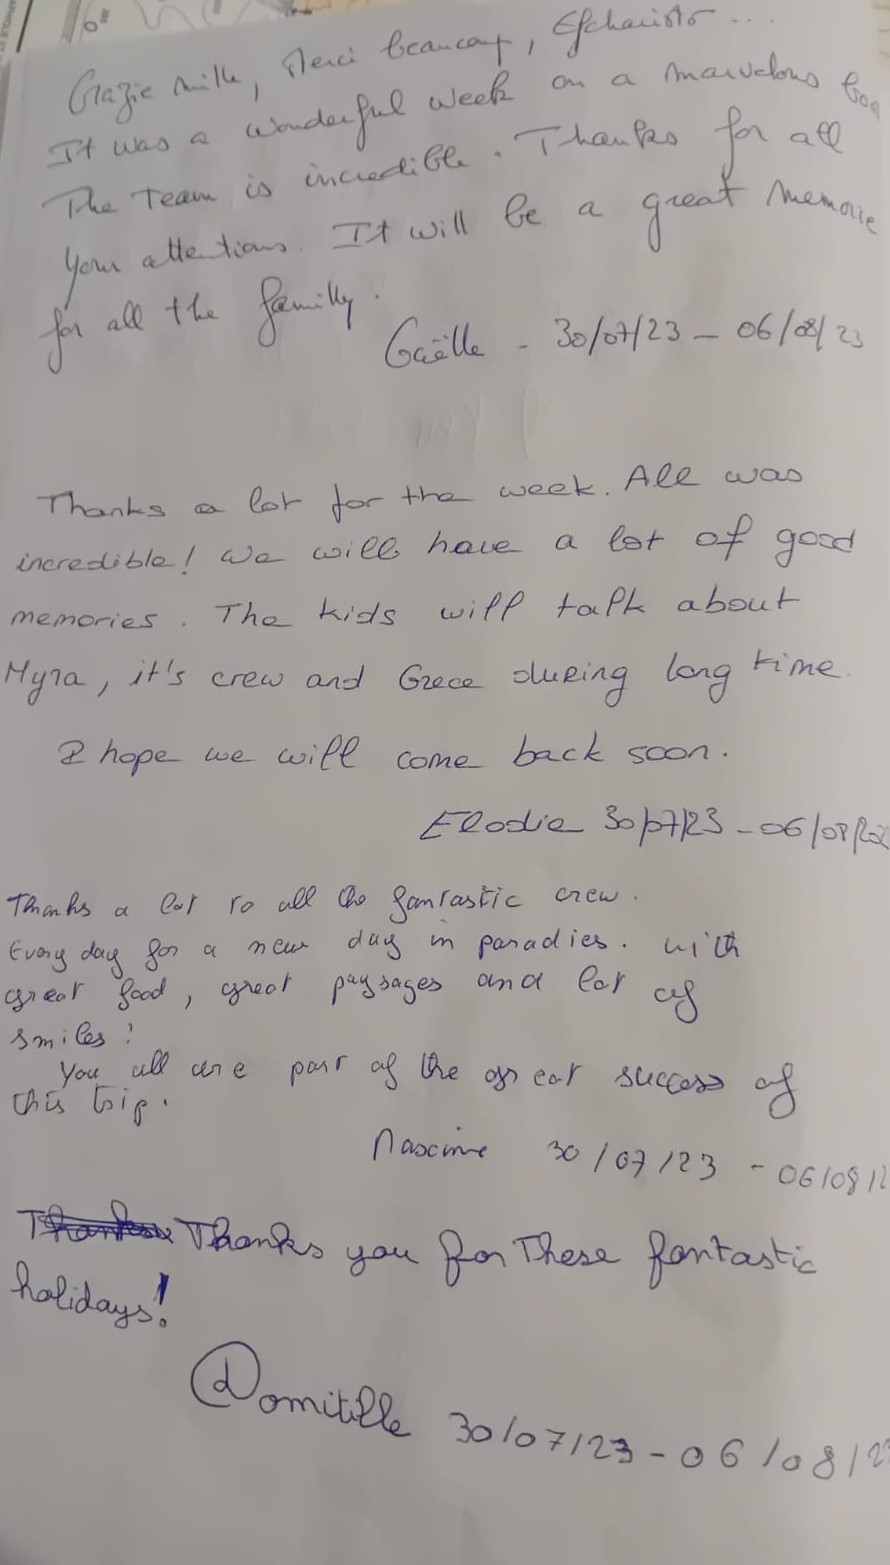 Grazie mille, Merci beaucoup, Efcharisto...
It was a wonderful week on a marvelous
The Team is incredible. Thanks for all
your attentions. It will be a great memorie
for all the familly.
Gaëlle - 30/07/23 - 06/08/23
Thanks a lot for the week. All was
incredible! We will have a lot of good
memories. The kids will talk about
Myra, it's crew and Grece during long time.
I hope we will come back soon.
Elodie 30/07/23 - 06/08/
Thanks a lot to all the fantastic crew.
Every day for a new day in paradies. With
great food, great paysages and lot of
smiles!
You all are part of the great success of
this trip.
Maxime 30/07/23 - 06/08/
Thanks you for These fantastic
holidays!
Domitille 30/07/23 - 06/08/